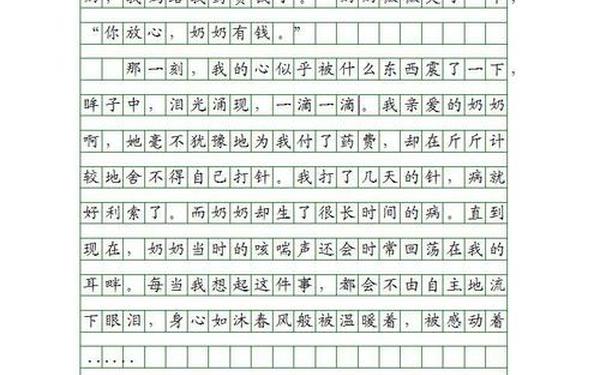 “你放心，奶奶有钱。”
那一刻，我的心似乎被什么东西震了一下，
眸子中，泪光涌现，一滴一滴。我亲爱的奶奶
啊，她毫不犹豫地为我付了药费，却在斤斤计
较地舍不得自己打针。我打了几天的针，病就
好利索了。而奶奶却生了很长时间的病。直到
现在，奶奶当时的咳喘声还会时常回荡在我的
耳畔。每当我想起这件事，都会不由自主地流
下眼泪，身心如沐春风般被温暖着，被感动着
……